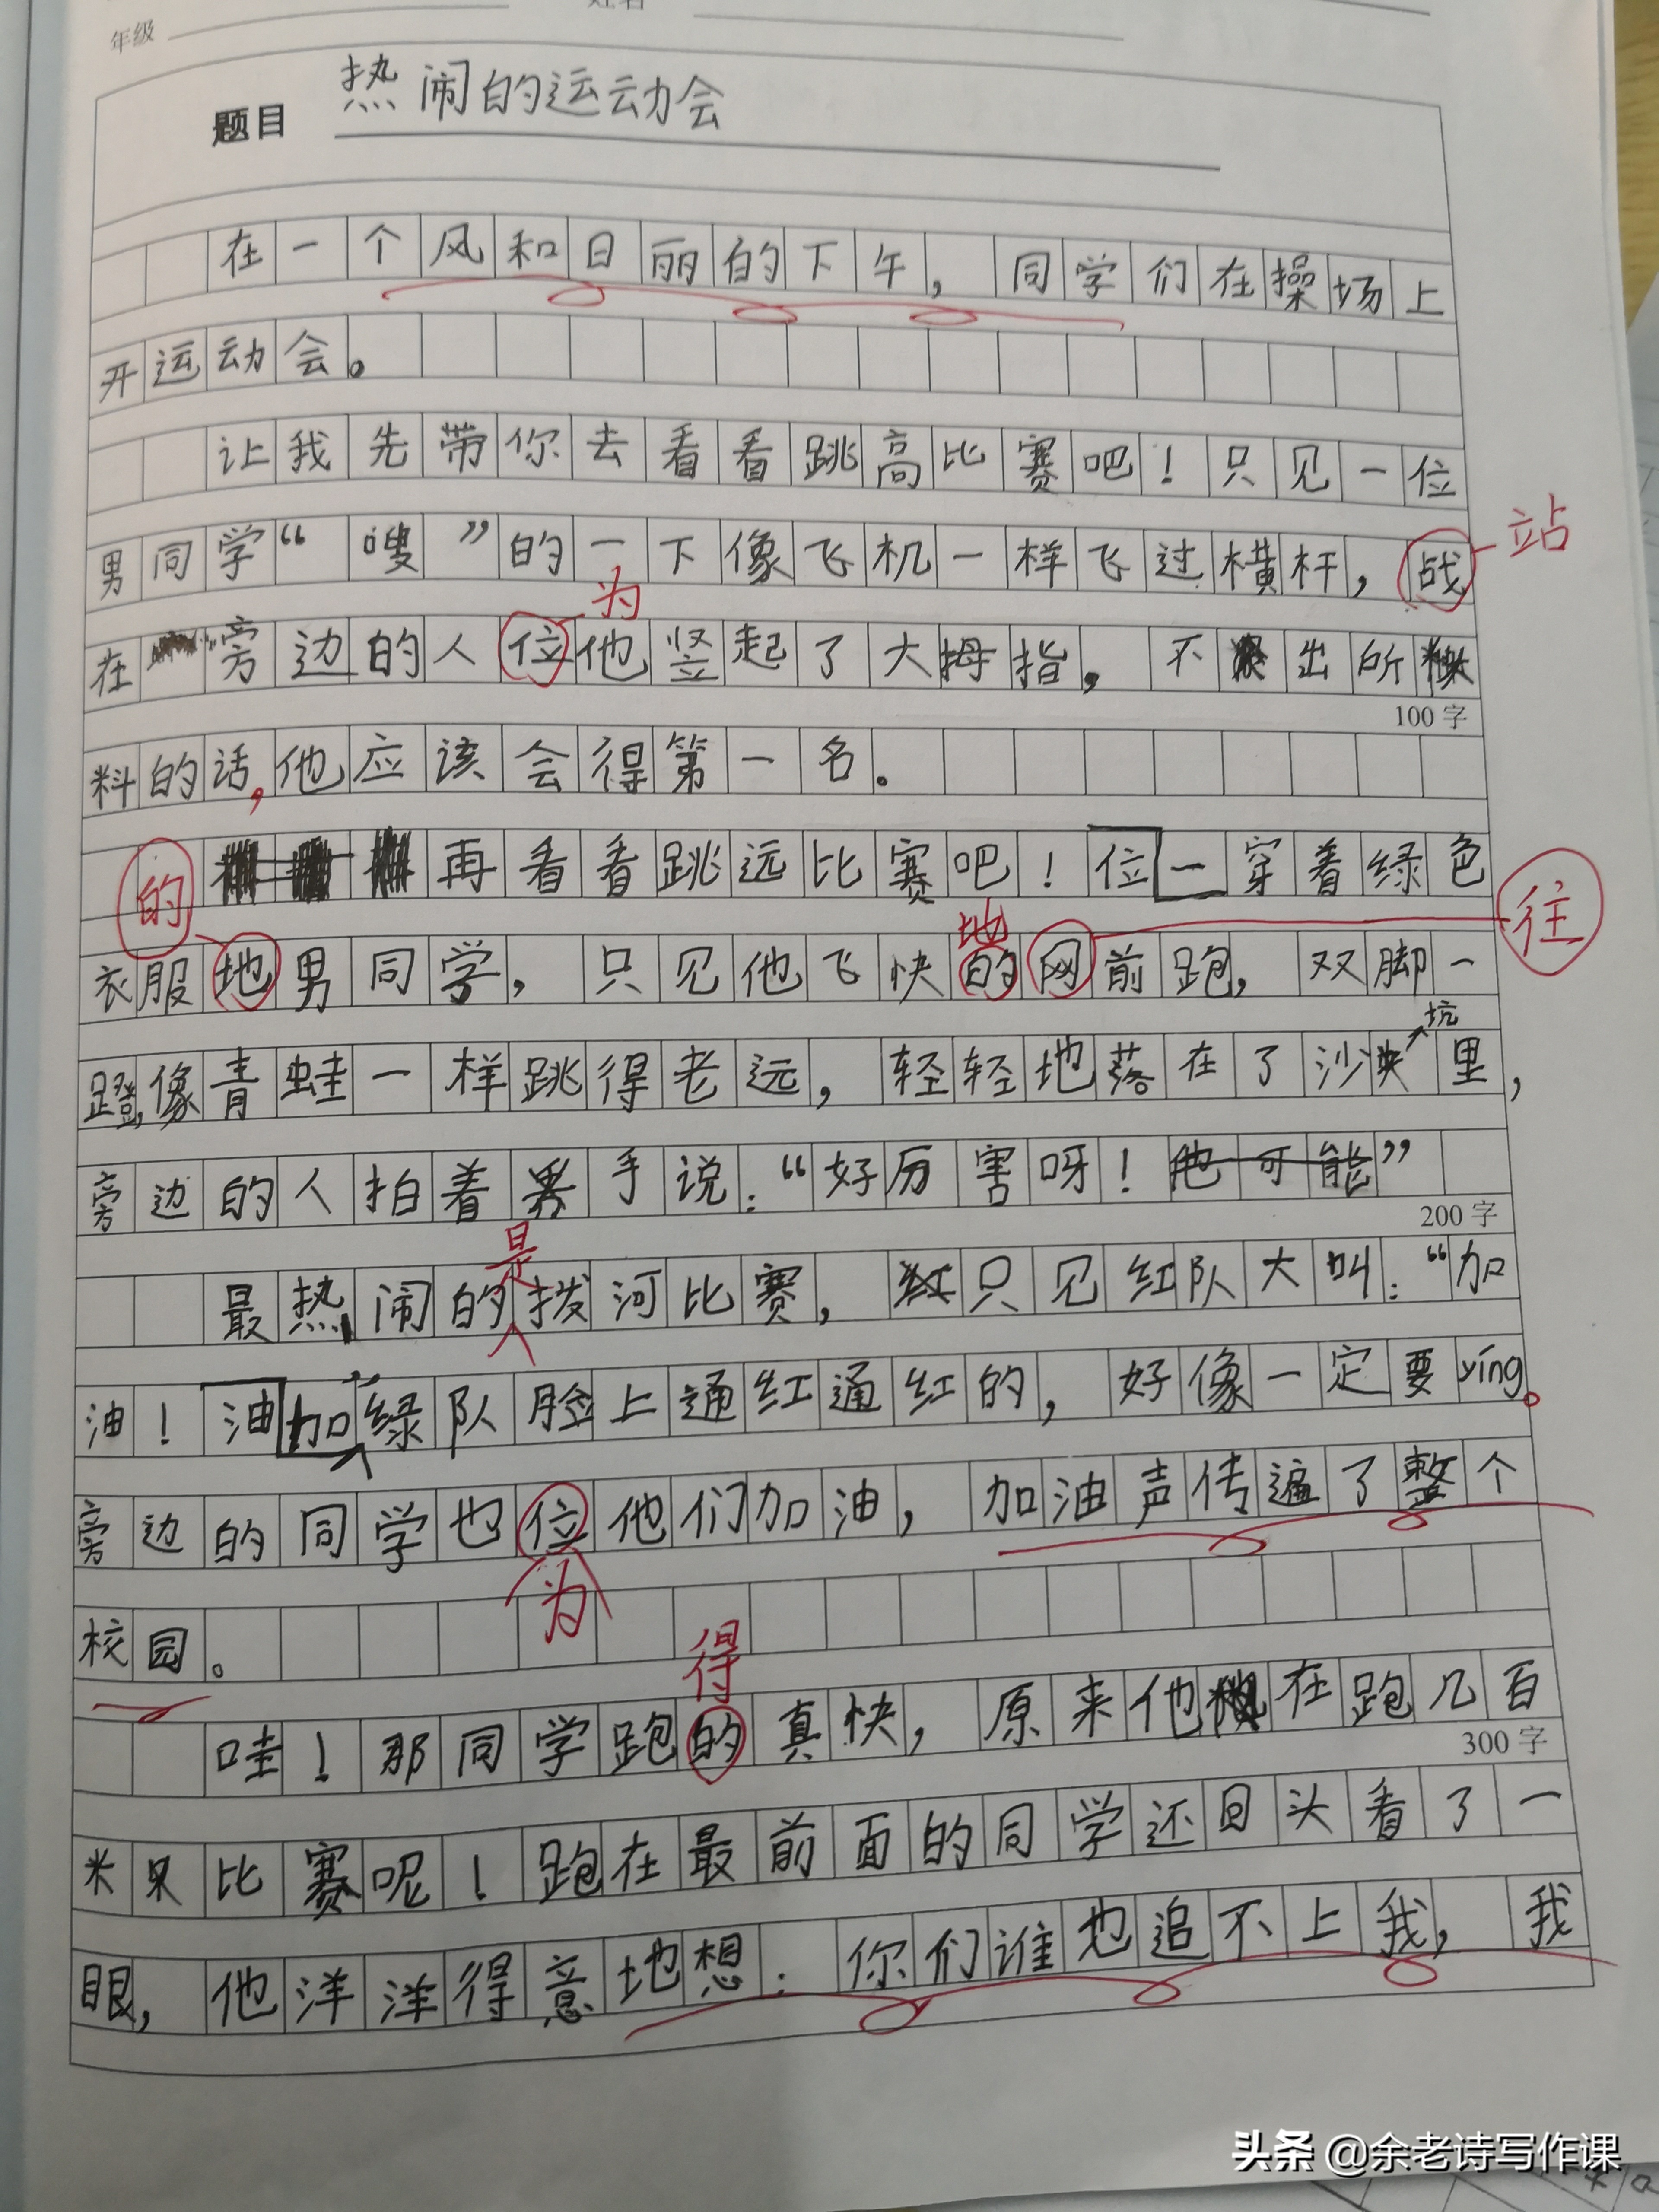 年级
姓名
题目 热闹的运动会
在一个风和日丽的下午，同学们在操场上
开运动会。
让我先带你去看看跳高比赛吧！只见一位
男同学“嗖”的一下像飞机一样飞过横杆，战
站
为
在旁边的人位他竖起了大拇指。不出所
100字
料的话，他应该会得第一名。
再看看跳远比赛吧！位一穿着绿色
的
地
往
衣服地男同学，只见他飞快的网前跑，双脚一
坑
蹬，像青蛙一样跳得老远，轻轻地落在了沙里，
旁边的人拍着手说：“好厉害呀！他可能”
200字
是
最热闹的拨河比赛，只见红队大叫：“加
油！油加”绿队脸上通红通红的，好像一定要yíng。
旁边的同学也位他们加油，加油声传遍了整个
为
校园。
得
哇！那同学跑的真快，原来他在跑几百
300字
米比赛呢！跑在最前面的同学还回头看了一
眼，他洋洋得意地想：你们谁也追不上我，我
头条 @余老诗写作课